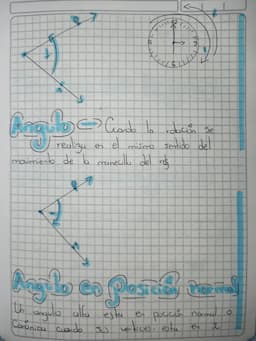 Angulo (-) → Cuando la rotación se
realiza en el mismo sentido del
movimiento de la manecilla del reloj
Angulo en Posición normal
Un angulo alfa esta en posición normal o
Canónica cuando su vertice esta en